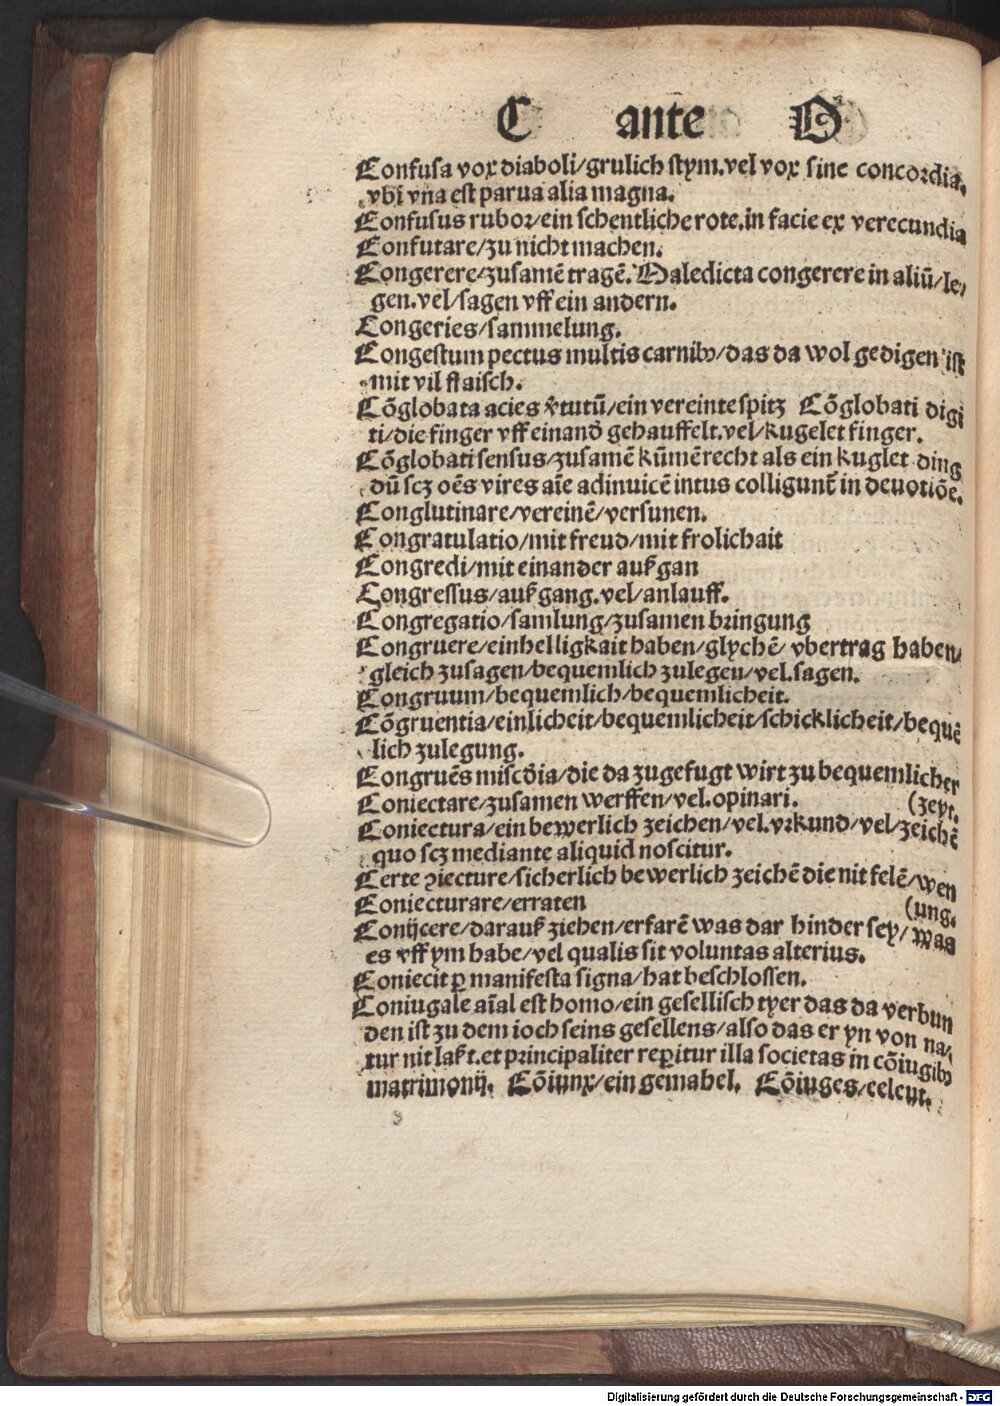 C ante D
Confusa vox diaboli/grulich stym.vel vox sine concordia.
vbi vna est parua alia magna.
Confusus rubor/ein schentliche rote.in facie ex verecundia
Confutare/zu nicht machen.
Congerere/zusamē tragē. Maledicta congerere in aliū/le/
gen.vel/sagen vff ein andern.
Congeries/sammelung.
Congestum pectus multis carnibꝰ/das da wol gedigen ist
mit vil flaisch.
Cōglobata acies v̄tutū/ein vereinte spitz Cōglobati digi
ti/die finger vff einand̄ gehauffelt.vel/kugelet finger.
Cōglobati sensus/zusamē kūmē recht als ein kuglet ding
dū scꝫ oēs vires aīe adinuicē intus colligunt̄ in deuotiōe.
Conglutinare/vereinē/versunen.
Congratulatio/mit freud/mit frolichait
Congredi/mit einander außgan
Congressus/außgang.vel/anlauff.
Congregatio/samlung/zusamen bringung
Congruere/einhelligkait haben/glychē/vbertrag haben/
gleich zusagen/bequemlich zulegen/vel.sagen.
Congruum/bequemlich/bequemlicheit.
Cōgruentia/einlicheit/bequemlicheit/schicklicheit/bequē
lich zulegung.
Congruēs misc̄dia/die da zugefugt wirt zu bequemlicher
Coniectare/zusamen werffen/vel.opinari. (zeyt.
Coniectura/ein bewerlich zeichen/vel.vrkund/vel/zeichē
quo scꝫ mediante aliquid noscitur.
Certe ꝯiecture/sicherlich bewerlich zeichē die nit felē/wen
Coniecturare/erraten (ung.
Conijcere/darauß ziehen/erfarē was dar hinder sey/was
es vff ym habe/vel qualis sit voluntas alterius.
Coniecit ꝑ manifesta signa/hat beschlossen.
Coniugale aīal est homo/ein gesellisch tyer das da verbun
den ist zu dem ioch seins gesellens/also das er yn von na/
tur nit laßt.et principaliter reperitur illa societas in cōiugibꝰ
matrimonij. Cōiunx/ein gemahel. Cōiuges/eeleut.
Digitalisierung gefördert durch die Deutsche Forschungsgemeinschaft - DFG